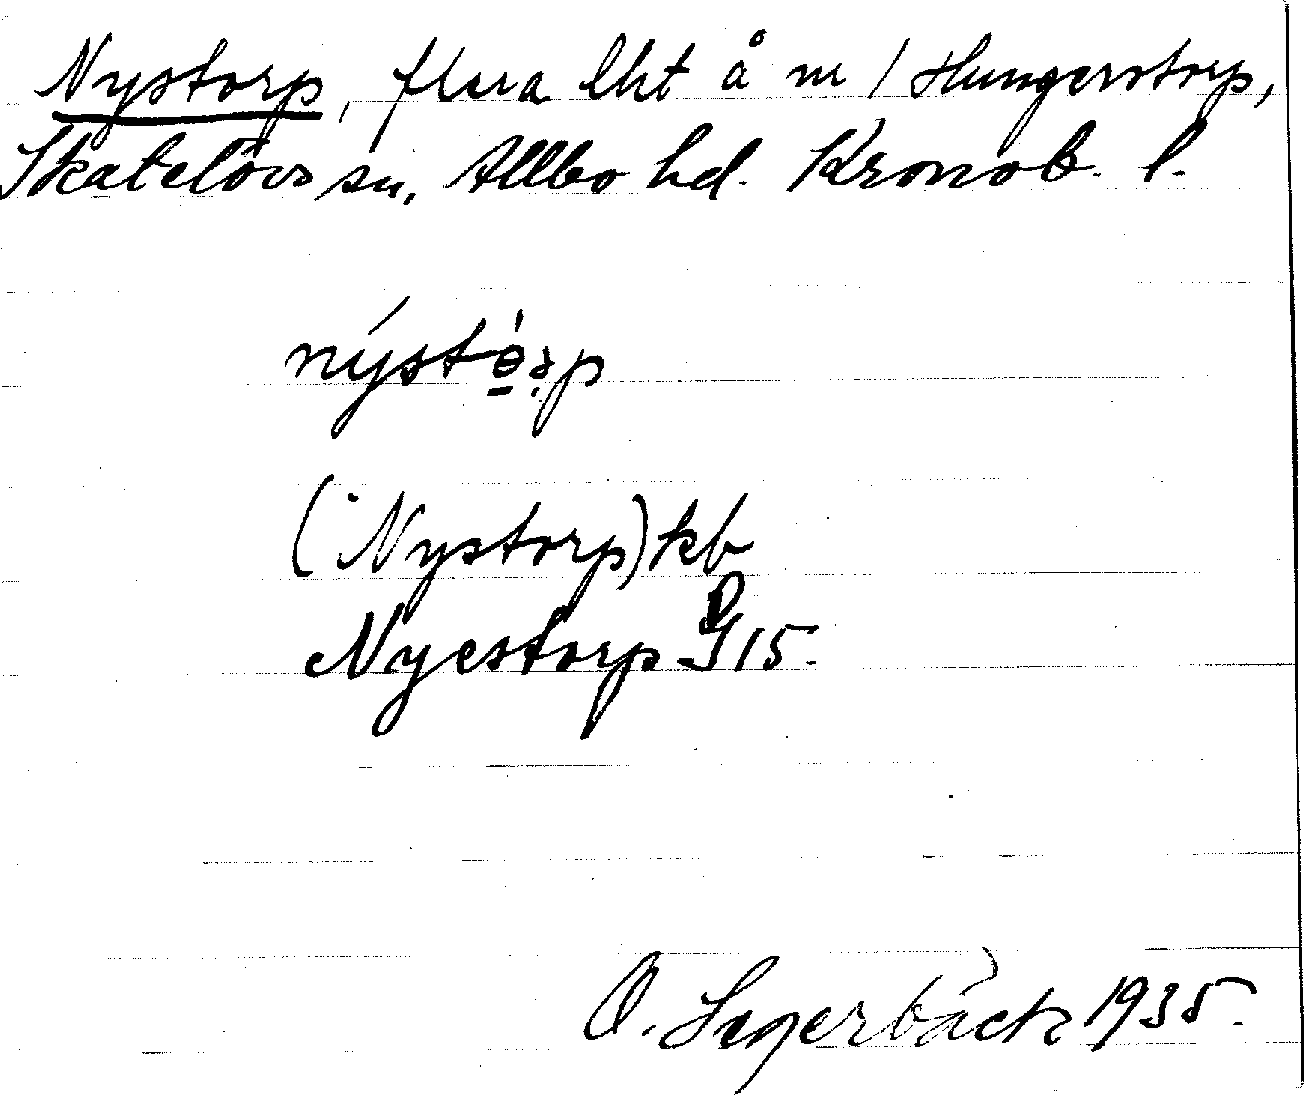 Nystorp, flera lht å nr 1 Hungerstorp,
Skatelövs sn, Allbo hd. Kronob. l.
nýstò̱rp
(Nystorp) kb
Nyestorp J 15.
O. Lagerbäck 1935.